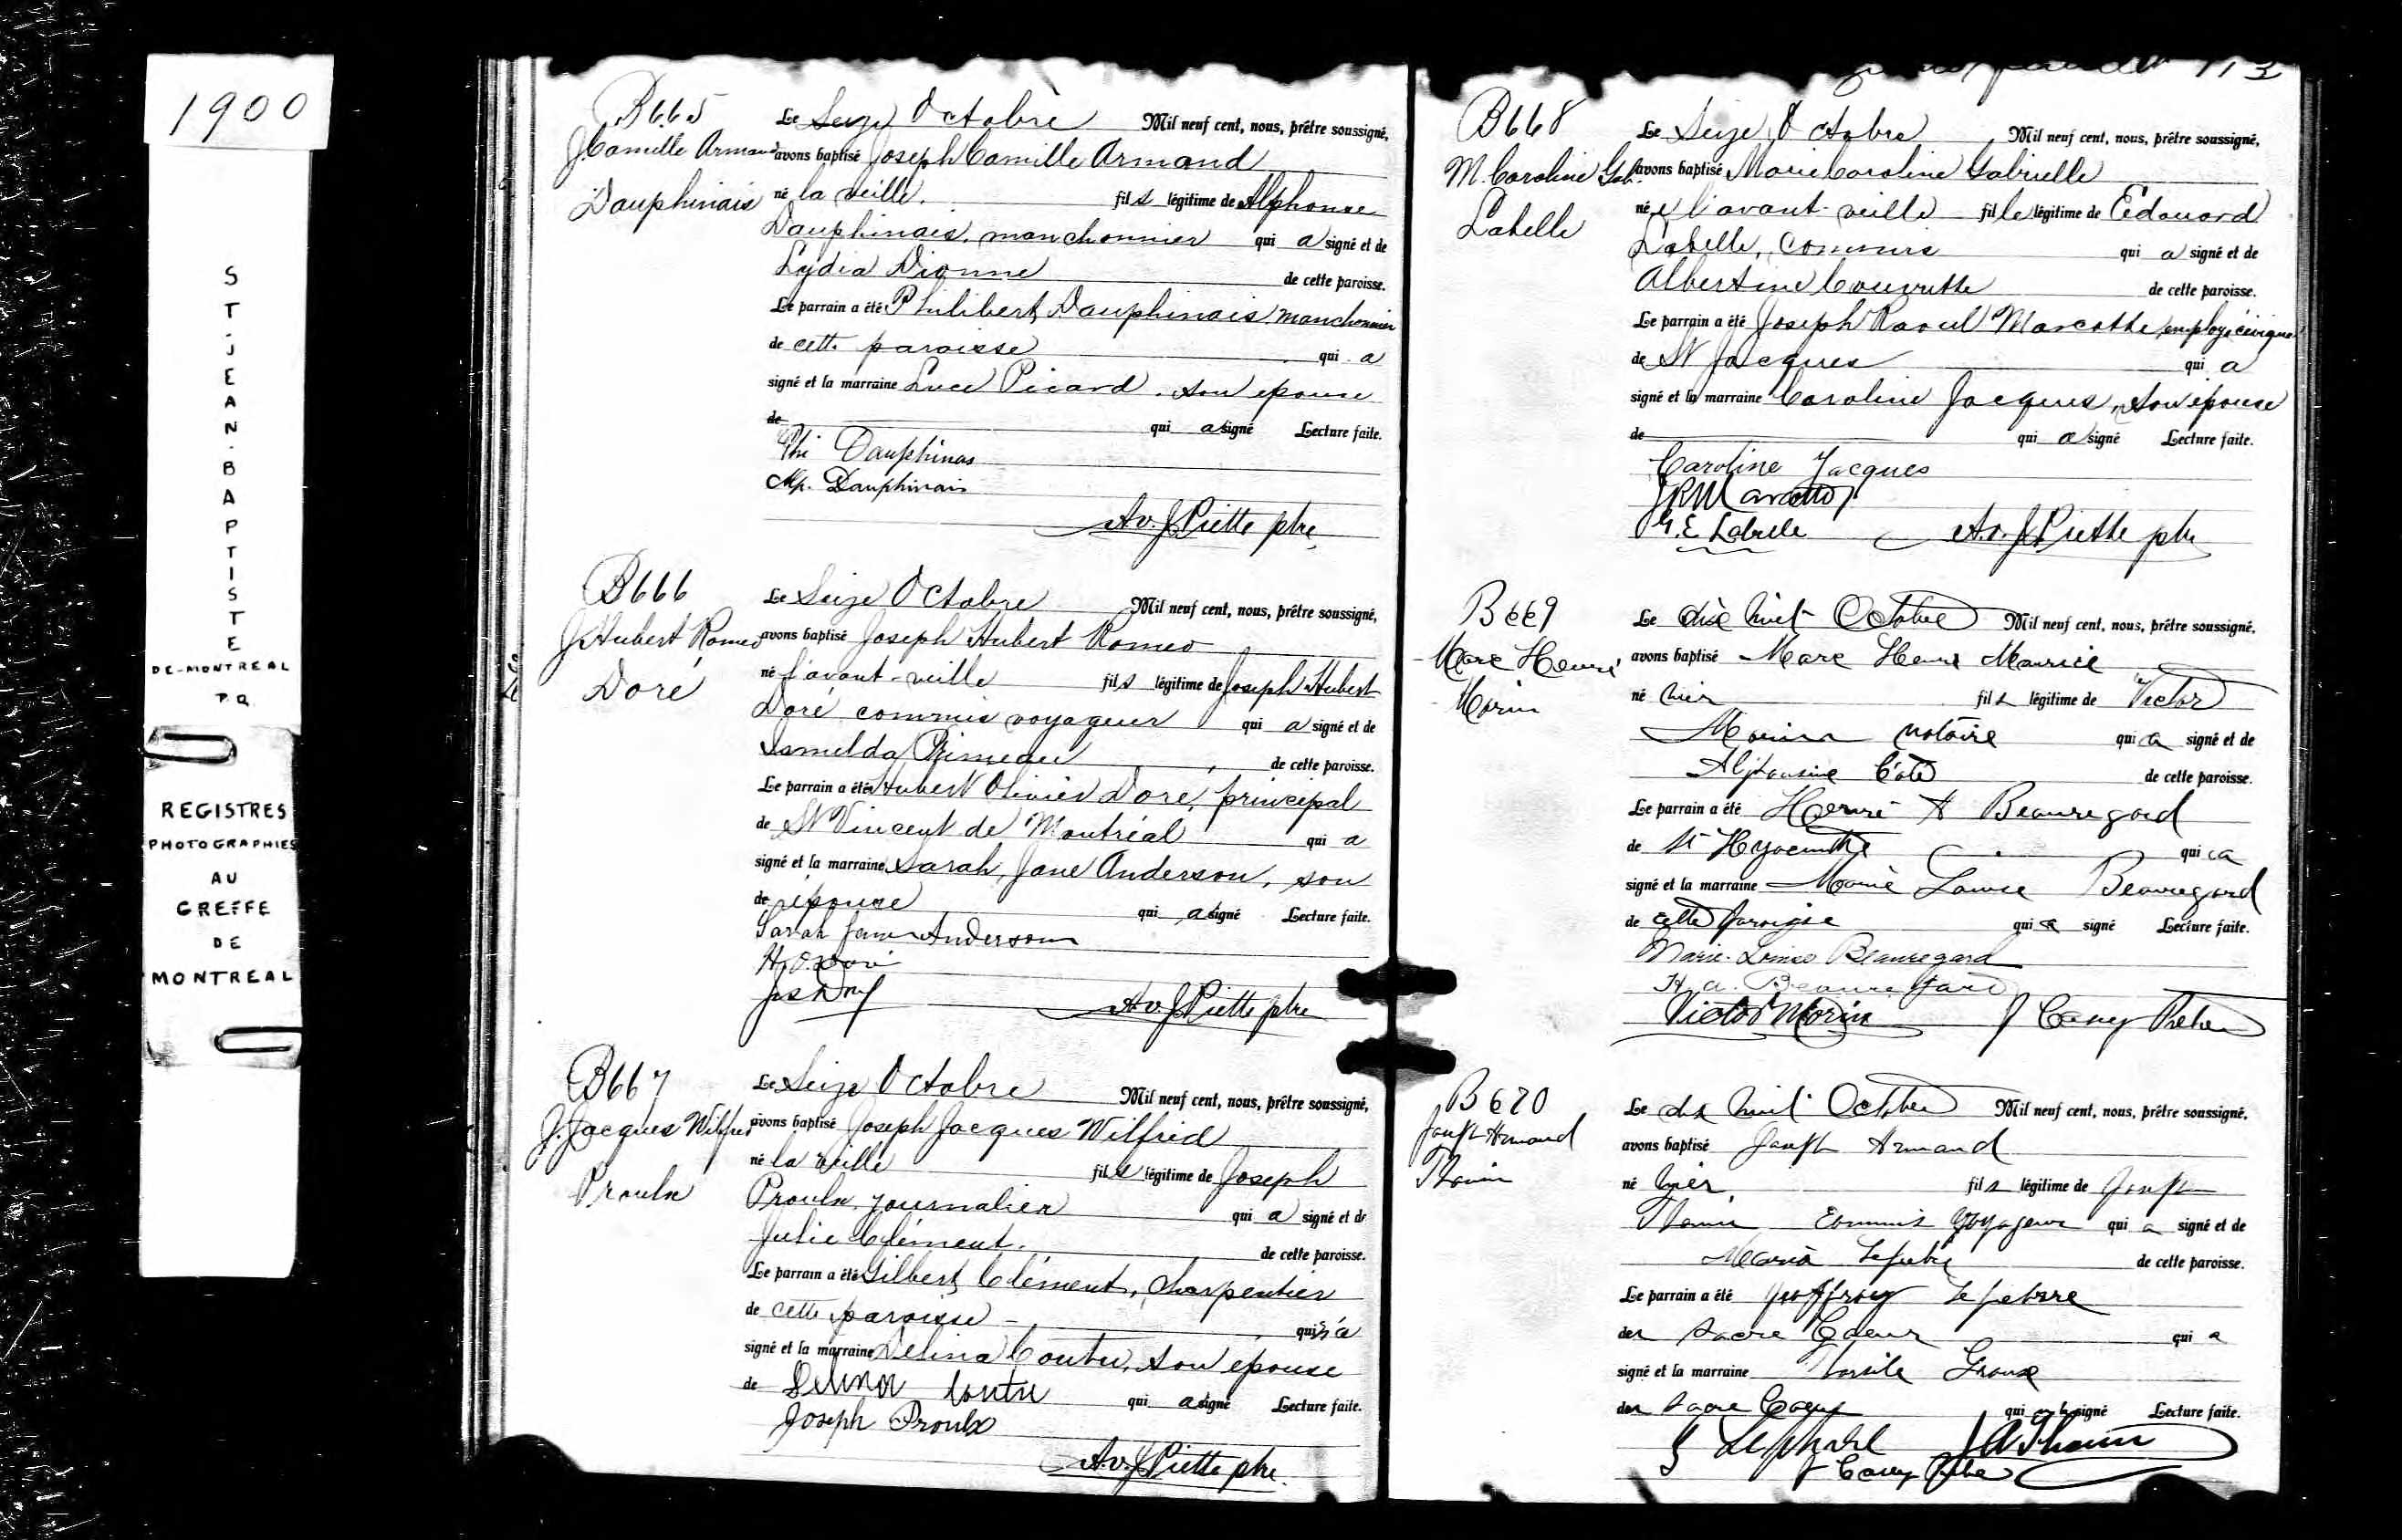 1900
ST-JEAN-BAPTISTE
DE-MONTREAL
P.Q.
REGISTRES
PHOTOGRAPHIES
AU
GREFFE
DE
MONTREAL
B665
J. Camille Armand
Dauphinais
Le Seize Octobre Mil neuf cent, nous, prêtre soussigné,
avons baptisé Joseph Camille Armand
né la veille. fils légitime de Alphonse
Dauphinais, manchonnier qui a signé et de
Lydia Dionne de cette paroisse.
Le parrain a été Philibert Dauphinais manchonnier
de cette paroisse qui a
signé et la marraine Luce Picard, son epouse
de qui a signé Lecture faite.
Phi Dauphinas
Alp. Dauphinais
Av. J. Piette ptre
B666
J. Hubert Romeo
Doré
Le Seize Octobre Mil neuf cent, nous, prêtre soussigné,
avons baptisé Joseph Hubert Romeo
né l'avant-veille fils légitime de Joseph Hubert
Doré commis voyageur qui a signé et de
Primeau de cette paroisse.
Le parrain a été Hubert Olivier Doré, principal
de St Vincent de Montréal qui a
signé et la marraine Sarah Jane Anderson, son
de épouse qui a signé Lecture faite.
Sarah Jane Anderson
H. O. Doré
Jos Doré
Av. J. Piette ptre
B667
J. Jacques Wilfred
Proulx
Le Seize Octobre Mil neuf cent, nous, prêtre soussigné,
avons baptisé Joseph Jacques Wilfrid
né la veille fils légitime de Joseph
Proulx, journalier qui a signé et de
Julie Clément. de cette paroisse.
Le parrain a été Gilbert Clément, charpentier
de cette paroisse qui n'a
signé et la marraine Delina Coutu, son epouse
de Delina Coutu qui a signé Lecture faite.
Joseph Proulx
Av. J. Piette ptre
113
B668
M. Caroline Gab.
Labelle
Le Seize Octobre Mil neuf cent, nous, prêtre soussigné,
avons baptisé Marie Caroline Gabrielle
née l'avant-veille fille légitime de Edouard
Labelle, commis qui a signé et de
Albertine Couvrette de cette paroisse.
Le parrain a été Joseph Raoul Marcotte, employé civique
de St Jacques qui a
signé et la marraine Caroline Jacques, son épouse
de qui a signé Lecture faite.
Caroline Jacques
J R Marcotte
G. E Labelle
Av. J. Piette ptre
B669
Marc Henri
Morin
Le dix huit Octobre Mil neuf cent, nous, prêtre soussigné,
avons baptisé Marc Henri Maurice
né hier fils légitime de Victor
Morin notaire qui a signé et de
Alphonsine Coté de cette paroisse.
Le parrain a été Henri A Beauregard
de St Hyacinthe qui a
signé et la marraine Marie Louise Beauregard
de cette paroisse qui a signé Lecture faite.
Marie-Louise Beauregard
H. A. Beauregard
Victor Morin
J Casey Ptre
B670
Joseph Armand
Thouin
Le dix huit Octobre Mil neuf cent, nous, prêtre soussigné,
avons baptisé Joseph Armand
né hier, fils légitime de Joseph
Thouin Commis Voyageur qui a signé et de
Maria Lefebvre de cette paroisse.
Le parrain a été Geoffroy Lefebvre
du Sacre Coeur qui a
signé et la marraine Groux
du Sacre Coeur qui signé Lecture faite.
G Lefebvre J A Thouin
J Casey Ptre